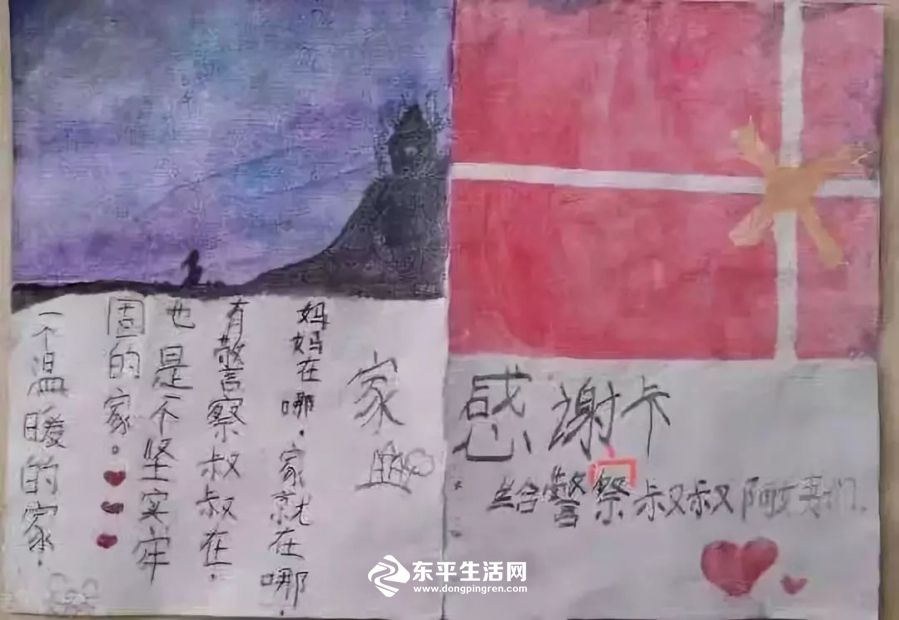 感谢卡
给警察叔叔阿姨们.
家
妈妈在哪,家就在哪.
有警察叔叔在,
也是个坚实牢
固的家。
一个温暖的家.
东平生活网
www.dongpingren.com